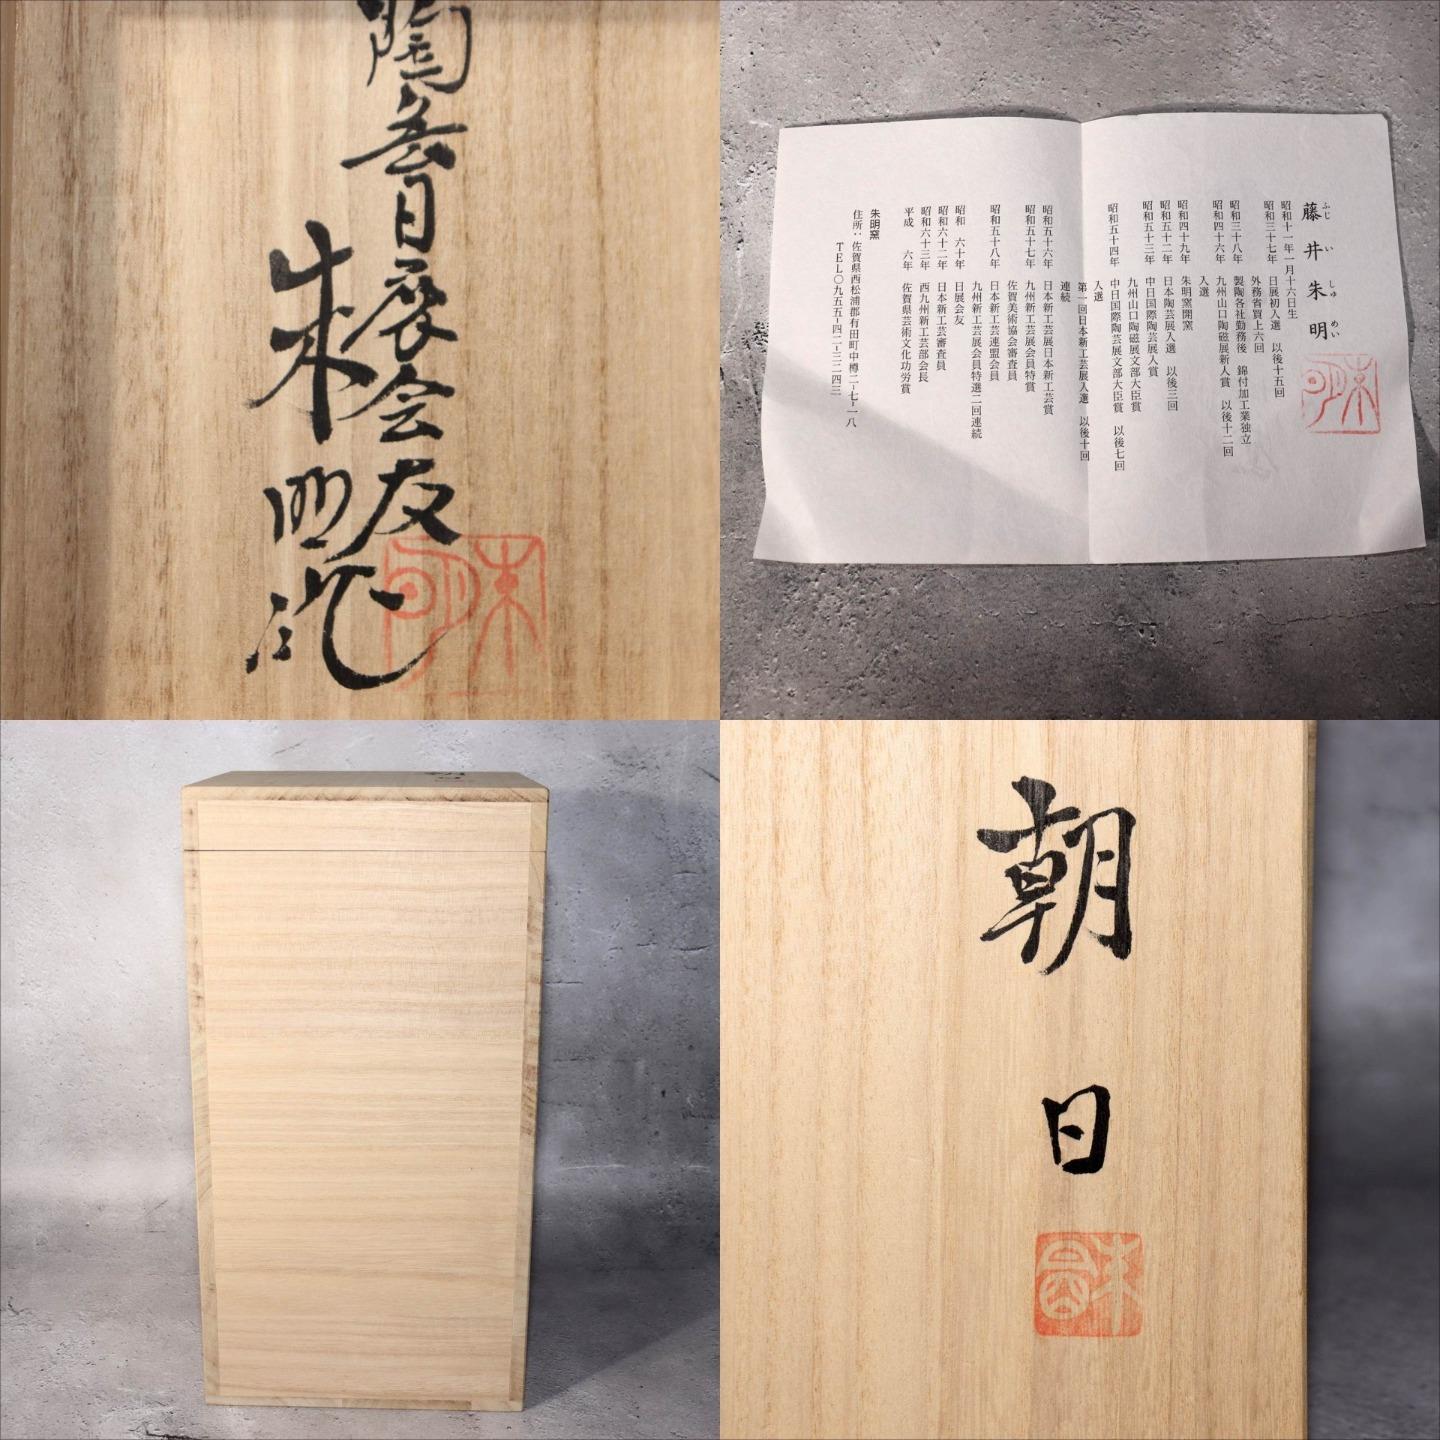 陶芸日展会友
朱明作
藤井朱明
ふじいしゅめい
昭和十一年一月十六日生
昭和三十七年 日展初入選 以後十五回
外務省買上六回
昭和三十八年 製陶各社勤務後 錦付加工業独立
昭和四十六年 九州山口陶磁展新人賞 以後十二回
入選
昭和四十九年 朱明窯開窯
昭和五十二年 日本陶芸展入選 以後三回
昭和五十三年 中日国際陶芸展入賞
九州山口陶磁展文部大臣賞
昭和五十四年 中日国際陶芸展文部大臣賞 以後七回
入選
第一回日本新工芸展入選 以後十回
連続
昭和五十六年 日本新工芸展日本新工芸賞
昭和五十七年 九州新工芸展会員特賞
佐賀美術協会審査員
昭和五十八年 日本新工芸連盟会員
九州新工芸展会員特選二回連続
昭和六十年 日展会友
昭和六十二年 日本新工芸審査員
昭和六十三年 西九州新工芸部会長
平成六年 佐賀県芸術文化功労賞
朱明窯
住所:佐賀県西松浦郡有田町中樽二-七-一八
TEL〇九五五-四二-三二四三
朝日
朱明